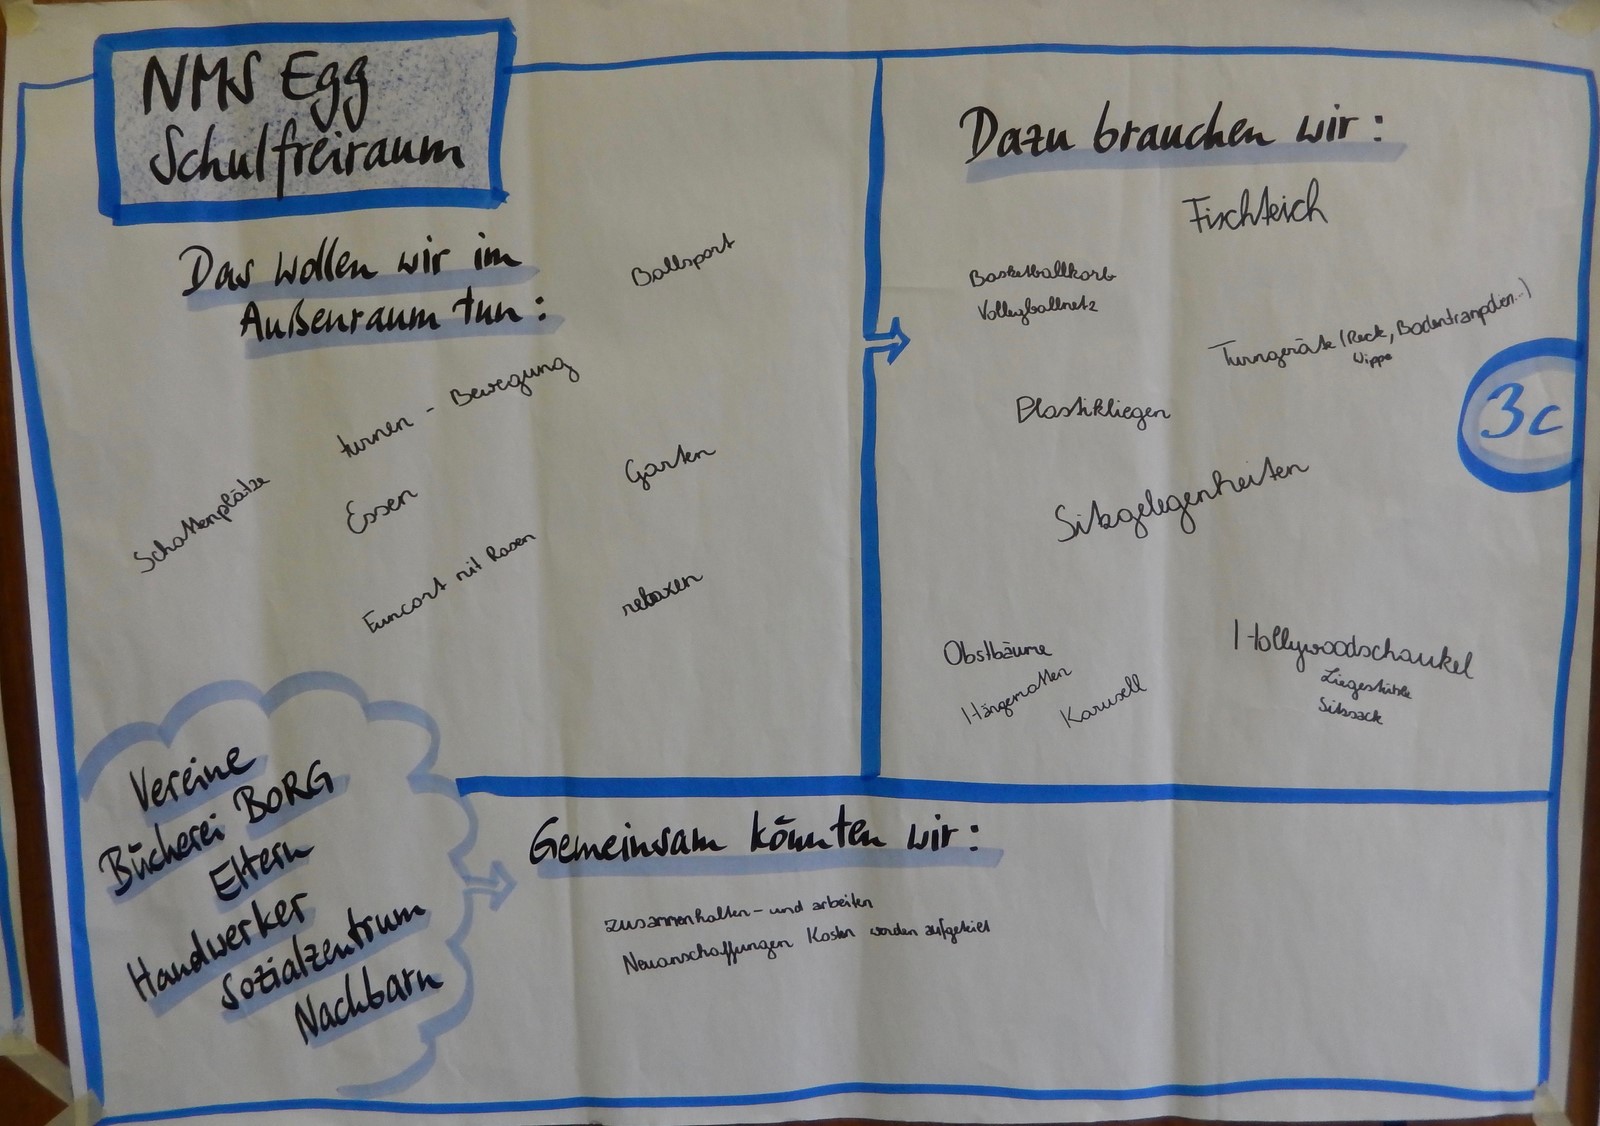 NMS Egg
Schulfreiraum
Das wollen wir im
Außenraum tun:
Ballsport
turnen - Bewegung
Schattenplätze
Essen
Garten
Funcort mit Rasen
relaxen
Dazu brauchen wir:
Fischteich
Basketballkorb
Volleyballnetz
Turngeräte (Reck, Bodentrampolin...)
Wippe
Plastikliegen
3c
Sitzgelegenheiten
Obstbäume
Hängematten
Karusell
Hollywoodschaukel
Liegestühle
Sitzsack
Vereine
Bücherei BORG
Eltern
Handwerker
Sozialzentrum
Nachbarn
Gemeinsam könnten wir:
zusammenhalten - und arbeiten
Neuanschaffungen Kosten werden aufgeteilt